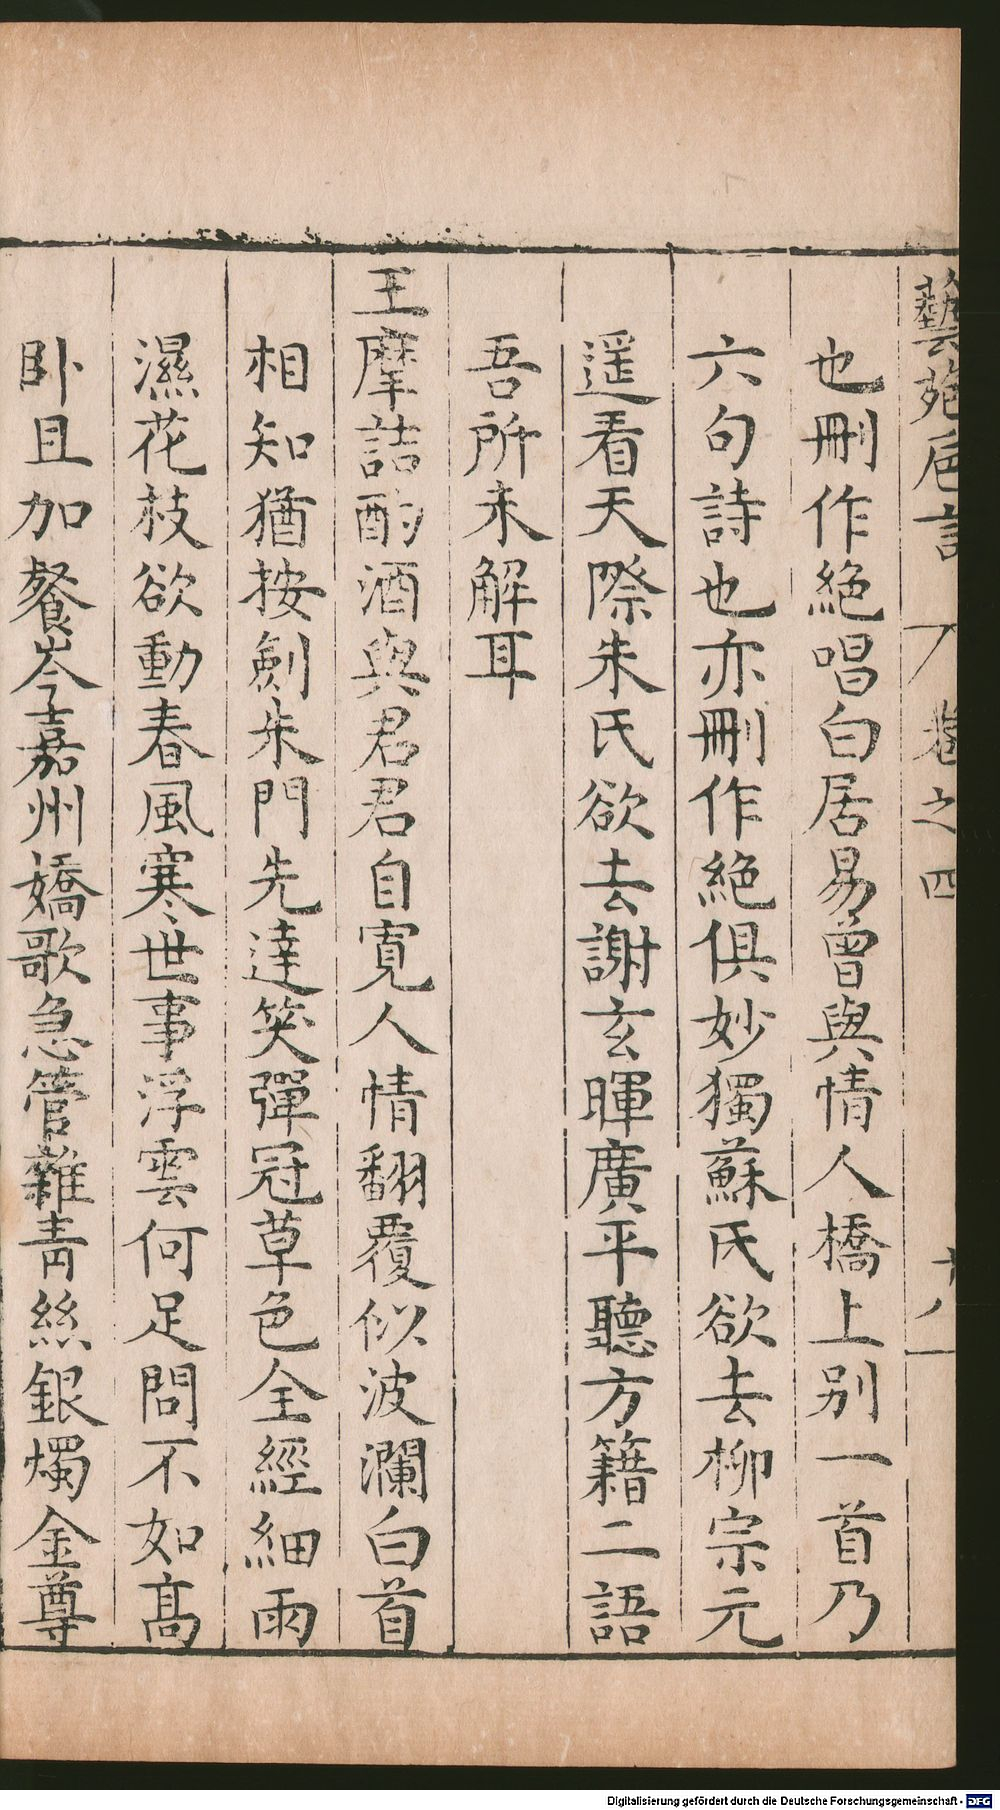 藝苑卮言 卷之四 十八
也刪作絕唱白居易曾與情人橋上别一首乃
六句詩也亦刪作絶俱妙獨蘇氏欲去柳宗元
遥看天際朱氏欲去謝玄暉廣平聽方籍二語
吾所未解耳
王摩詰酌酒與君君自寛人情翻覆似波瀾白首
相知猶按劍朱門先達笑彈冠草色全經細雨
濕花枝欲動春風寒世事浮雲何足問不如髙
卧且加餐岑嘉州嬌歌急管雜青絲銀燭金尊
Digitalisierung gefördert durch die Deutsche Forschungsgemeinschaft - DFG